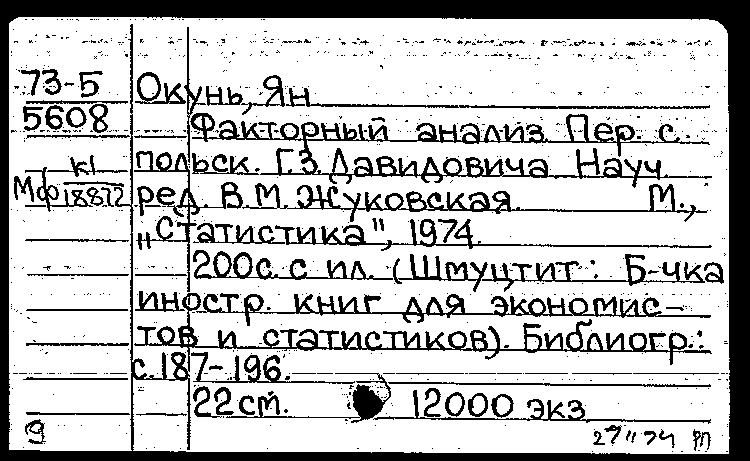 73-5
5608
Мф К1
18872
Окунь, Ян
Факторный анализ. Пер. с
польск. Г.З. Давидовича Науч
ред. В.М. Жуковская. М.,
„Статистика", 1974.
200с. с ил. (Шмуцтит: Б-чка
иностр. книг для экономис-
тов и статистиков). Библиогр.:
с. 187-196.
22см. 12000 экз
9